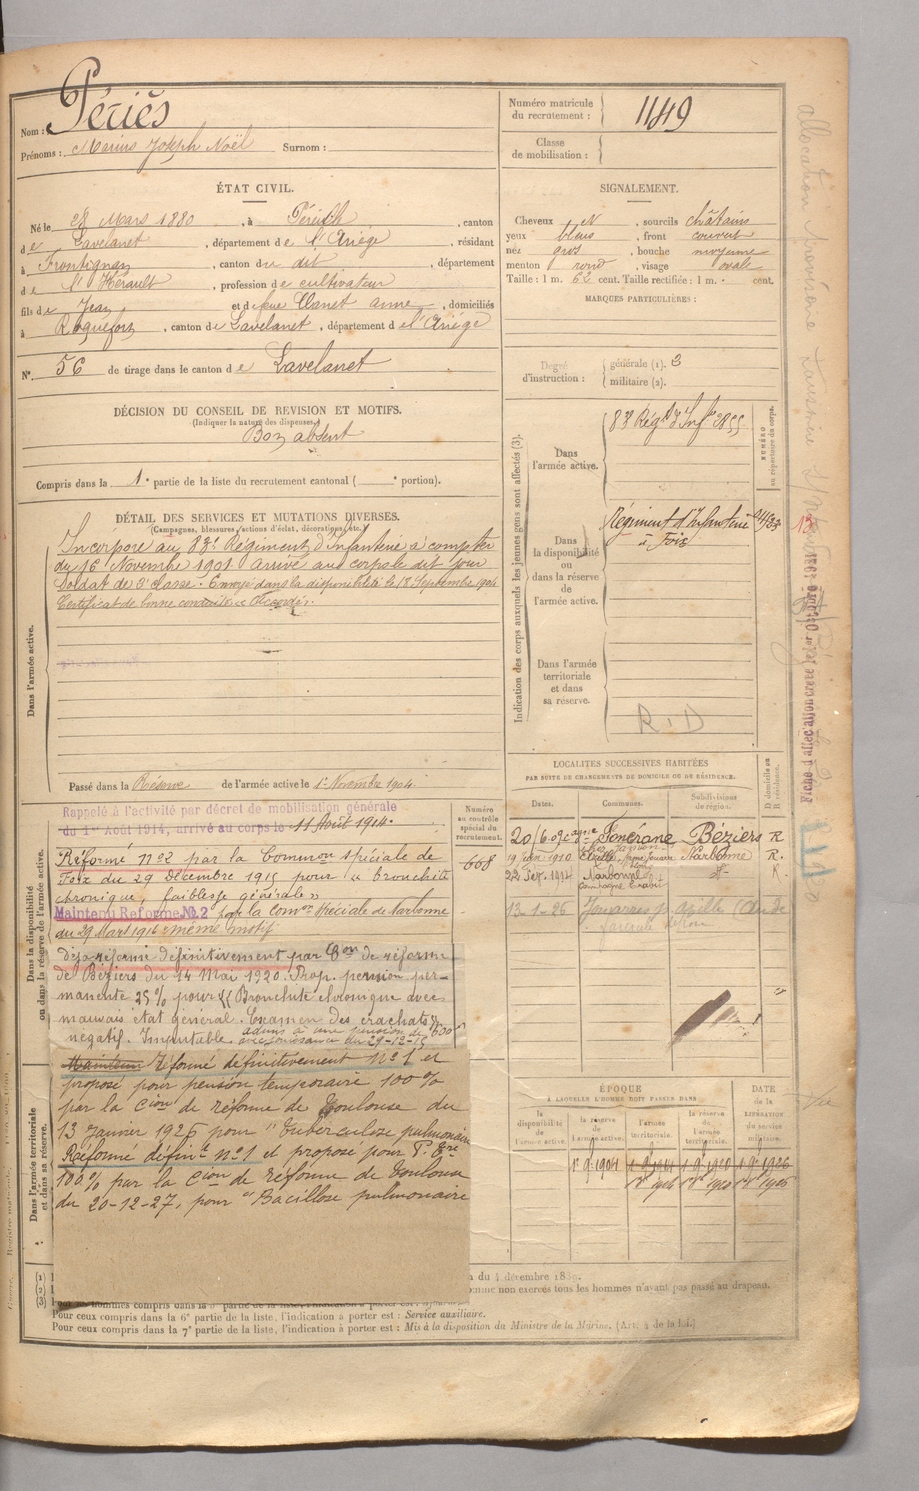 Nom : Périés
Prénoms : Marius Joseph Noël Surnom :
Numéro matricule du recrutement : 1149
Classe de mobilisation :
ÉTAT CIVIL.
Né le 28 Mars 1880, à Péreilh, canton
de Lavelanet, département de l'Ariége, résidant
à Frontignan, canton du dit, département
de l'Hérault, profession de cultivateur
fils de Jean et de feue Clanet anne, domiciliés
à Roquefort, canton de Lavelanet, département de l'Ariége
N° 56 de tirage dans le canton de Lavelanet
SIGNALEMENT.
Cheveux N, sourcils châtains
yeux bleus, front couvert
nez gros, bouche moyenne
menton rond, visage ovale
Taille : 1 m. 62 cent. Taille rectifiée : 1 m. cent.
MARQUES PARTICULIÈRES :
Degré d'instruction : générale (1). 3
militaire (2).
DÉCISION DU CONSEIL DE REVISION ET MOTIFS.
(Indiquer la nature des dispenses.)
Bon absent
Compris dans la 1e partie de la liste du recrutement cantonal ( e portion).
DÉTAIL DES SERVICES ET MUTATIONS DIVERSES.
(Campagnes, blessures, actions d'éclat, décorations, etc.)
Dans l'armée active.
Incorporé au 83e Régiment d'Infanterie à compter
du 16 Novembre 1901 arrivé au corps le dit jour
Soldat de 2e classe. Envoyé dans la disponibilité le 18 Septembre 1904
Certificat de bonne conduite « Accordé ».
Passé dans la Réserve de l'armée active le 1er Novembre 1904
Indication des corps auxquels les jeunes gens sont affectés (3).
NUMÉRO au répertoire du corps.
Dans l'armée active.
83e Régt d'Infie
Dans la disponibilité ou dans la réserve de l'armée active.
Régiment d'Infanterie
à Foix
Dans l'armée territoriale et dans sa réserve.
R.D
Fiche d'affectation créée le 1er Octobre 1921
allocation provisoire
Dans la disponibilité ou dans la réserve de l'armée active.
Numéro au contrôle spécial du recrutement.
668
Rappelé à l'activité par décret de mobilisation générale
du 1er Août 1914, arrivé au corps le 11 Août 1914.
Réformé n°2 par la Common spéciale de
Foix du 29 Décembre 1915 pour « bronchite
chronique, faiblesse générale »
Maintenu Réforme No 2 par la Comon Spéciale de Narbonne
du 29 Mars 1916 même motif
déjà réformé définitivement par Con de réforme
de Béziers du 14 Mai 1920. Prop. pension per-
manente 25% pour « Bronchite chronique avec
mauvais état général. Examen des crachats
négatif. Imputable admis à une pension de 600 f
avec jouissance du 29-12-15
Maintenu Réformé définitivement n° 1 et
proposé pour pension temporaire 100%
par la Cion de réforme de Toulouse du
13 Janvier 1926 pour "Tuberculose pulmonaire
Réformé définit n°1 et proposé pour P. Ere
100% par la Cion de réforme de Toulouse
du 20-12-27, pour "Bacillose pulmonaire
Dans l'armée territoriale et dans sa réserve.
LOCALITÉS SUCCESSIVES HABITÉES
PAR SUITE DE CHANGEMENTS DE DOMICILE OU DE RÉSIDENCE.
Dates. Communes. Subdivisions de région. D domicile ou R résidence.
Béziers R
1910 Narbonne R.
22 Sep. 1914 Narbonne R
13-1-26 Azille (Aude
ÉPOQUE
À LAQUELLE L'HOMME DOIT PASSER DANS
la disponibilité de l'armée active.
la réserve de l'armée active.
l'armée territoriale.
la réserve de l'armée territoriale.
DATE de la LIBÉRATION du service militaire.
(1)
(2)
(3)
Pour ceux compris dans la 6e partie de la liste, l'indication à porter est : Service auxiliaire.
Pour ceux compris dans la 7e partie de la liste, l'indication à porter est : Mis à la disposition du Ministre de la Marine. (Art. 4 de la loi.)